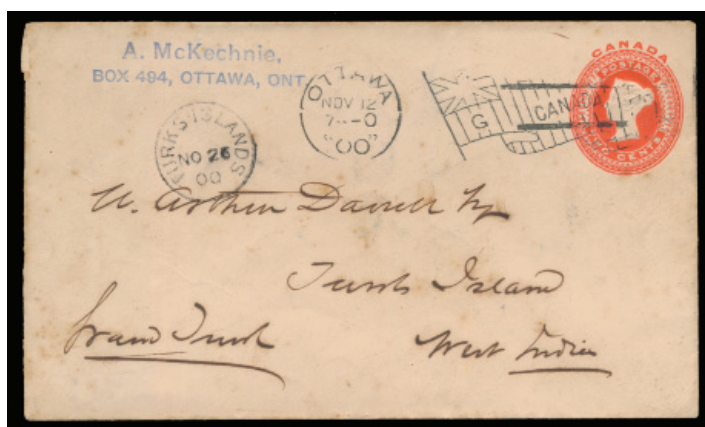 A. McKechnie.
BOX 494, OTTAWA, ONT
OTTAWA
NOV 12
7 - 0
"00"
G
CANADA
CANADA
POSTAGE
CENTS
TURKS ISLANDS
NO 26
00
Arthur
Turks Island
Grand Turk
West Indies